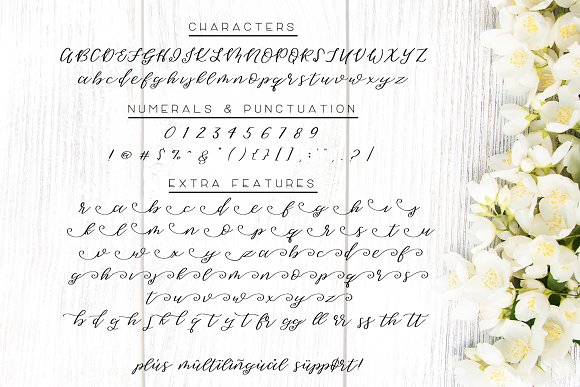 CHARACTERS
ABCDEFGHIJKLMNOPQRSTUVWXYZ
abcdefghijklmnopqrstuvwxyz
NUMERALS & PUNCTUATION
0 1 2 3 4 5 6 7 8 9
! @ # $ % ^ & * ( ) { } [ ] , : ' " , . ? |
EXTRA FEATURES
r a b c d e f g h i j
k l m n o p q r s t u
v w x y z a b c d e f
g h i j k l m n o p q r s
t u v w x y z
b d g h j k l q t y fr gg ll rr ss th tt
plus multilingual support!